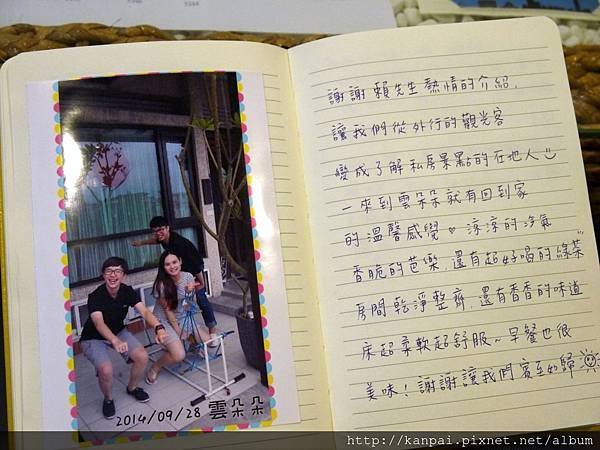 謝謝賴先生熱情的介紹,
讓我們從外行的觀光客
變成了解私房景點的在地人
一來到雲朵朵就有回到家
的溫馨感覺♥涼涼的冷氣
香脆的芭樂,還有超好喝的綠茶
房間乾淨整齊,還有香香的味道
床超柔軟超舒服~早餐也很
美味!謝謝讓我們賓至如歸
2014/09/28 雲朵朵
http://kanpai.pixnet.net/album